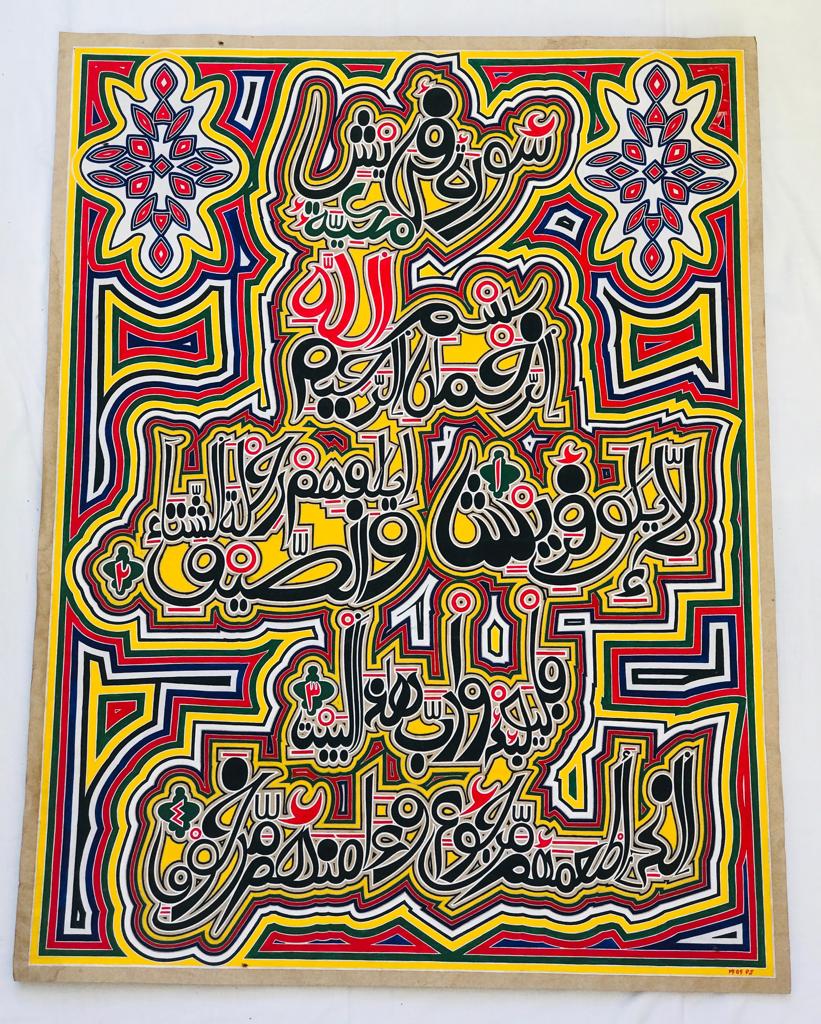 سورة قريش
مكية
بسم الله
الرحمن الرحيم
لإيلف قريش ١
إيلفهم رحلة الشتاء
والصيف ٢
فليعبدوا رب هذا البيت ٣
الذي أطعمهم من جوع وءامنهم من خوف ٤